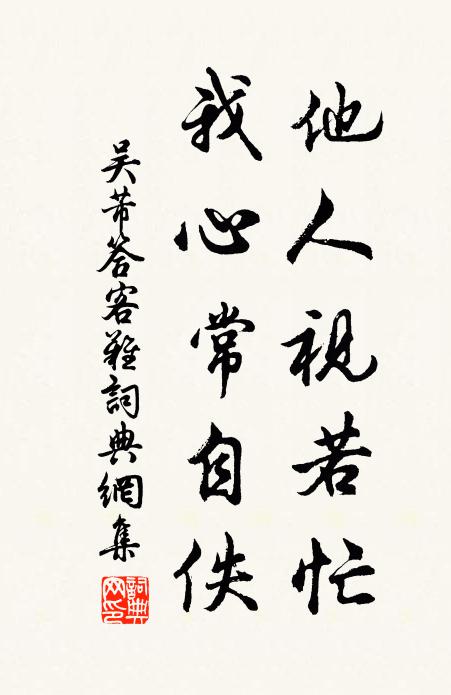 他人視若忙
我心常自佚
吴芾答客難詞典網集
詞典网印